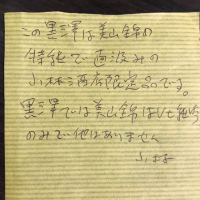 この黒澤は美山錦の
特純で直汲みの
小林酒店限定品です。
黒澤では美山錦はこの純吟
のみで他はありません
小林